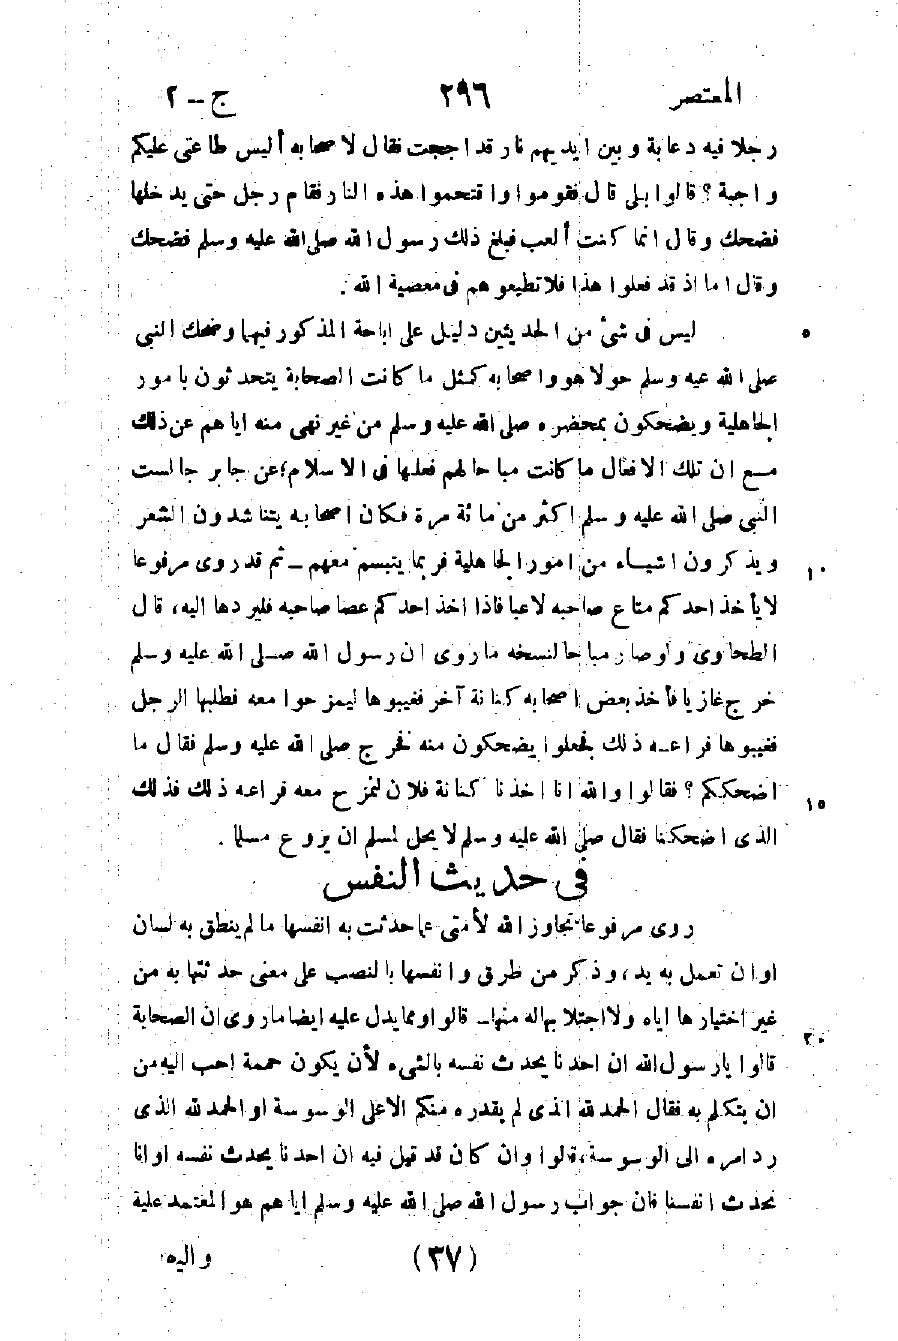 المعتصر ٢٩٦ ج – ٢
رجلا فيه دعابة وبين ايديهم نار قد اججت فقال لاصحابه أليس طاعتى عليكم
واجبة ؟ قالوا بلى قال فقوموا واقتحموا هذه النار فقام رجل حتى يدخلها
فضحك وقال انما كنت ألعب فبلغ ذلك رسول الله صلى الله عليه وسلم فضحك
وقال اما اذ قد فعلوا هذا فلا تطيعوهم فى معصية الله .
ليس فى شئ من الحديثين دليل على اباحة المذكور فيهما وضحك النبى ٥
صلى الله عيه وسلم حولا هو واصحابه كمثل ما كانت الصحابة يتحدثون بامور
الجاهلية ويضحكون بمحضره صلى الله عليه وسلم من غير نهى منه اياهم عن ذلك
مع ان تلك الافعال ما كانت مباحا لهم فعلها فى الاسلام، عن جابر جالست
النبى صلى الله عليه وسلم اكثر من مائة مرة فكان اصحابه يتناشدون الشعر
ويذكرون اشياء من امور الجاهلية فربما يتبسم معهم – ثم قد روى مرفوعا ١٠
لا يأخذ احدكم متاع صاحبه لاعبا فاذا اخذ احدكم عصا صاحبه فليردها اليه، قال
الطحاوى ولو صار مباحا لنسخه ما روى ان رسول الله صلى الله عليه وسلم
خرج غازيا فأخذ بعض اصحابه كنانة آخر فغيبوها ليمزحوا معه فطلبها الرجل
فغيبوها فراعه ذلك فجعلوا يضحكون منه فخرج صلى الله عليه وسلم فقال ما
اضحككم ؟ فقالوا والله انا اخذنا كنانة فلان لنمزح معه فراعه ذلك فذلك ١٥
الذى اضحكنا فقال صلى الله عليه وسلم لا يحل لمسلم ان يروع مسلما .
فى حديث النفس
روى مرفوعا تجاوز الله لأمتى عما حدثت به انفسها ما لم ينطق به لسان
او ان تعمل به يد ، وذكر من طرق وانفسها بالنصب على معنى حدثتها به من
غير اختيارها اياه ولا اجتلابها له منها – قالوا ومما يدل عليه ايضا ما روى ان الصحابة ٢٠
قالوا يا رسول الله ان احدنا يحدث نفسه بالشىء لأن يكون حممة احب اليه من
ان يتكلم به فقال الحمد لله الذى لم يقدره منكم الا على الوسوسة او الحمد لله الذى
رد امره الى الوسوسة، قالوا وان كان قد قيل فيه ان احدنا يحدث نفسه او انا
نحدث انفسنا فان جواب رسول الله صلى الله عليه وسلم اياهم هو المعتمد علية
(٣٧) واليه